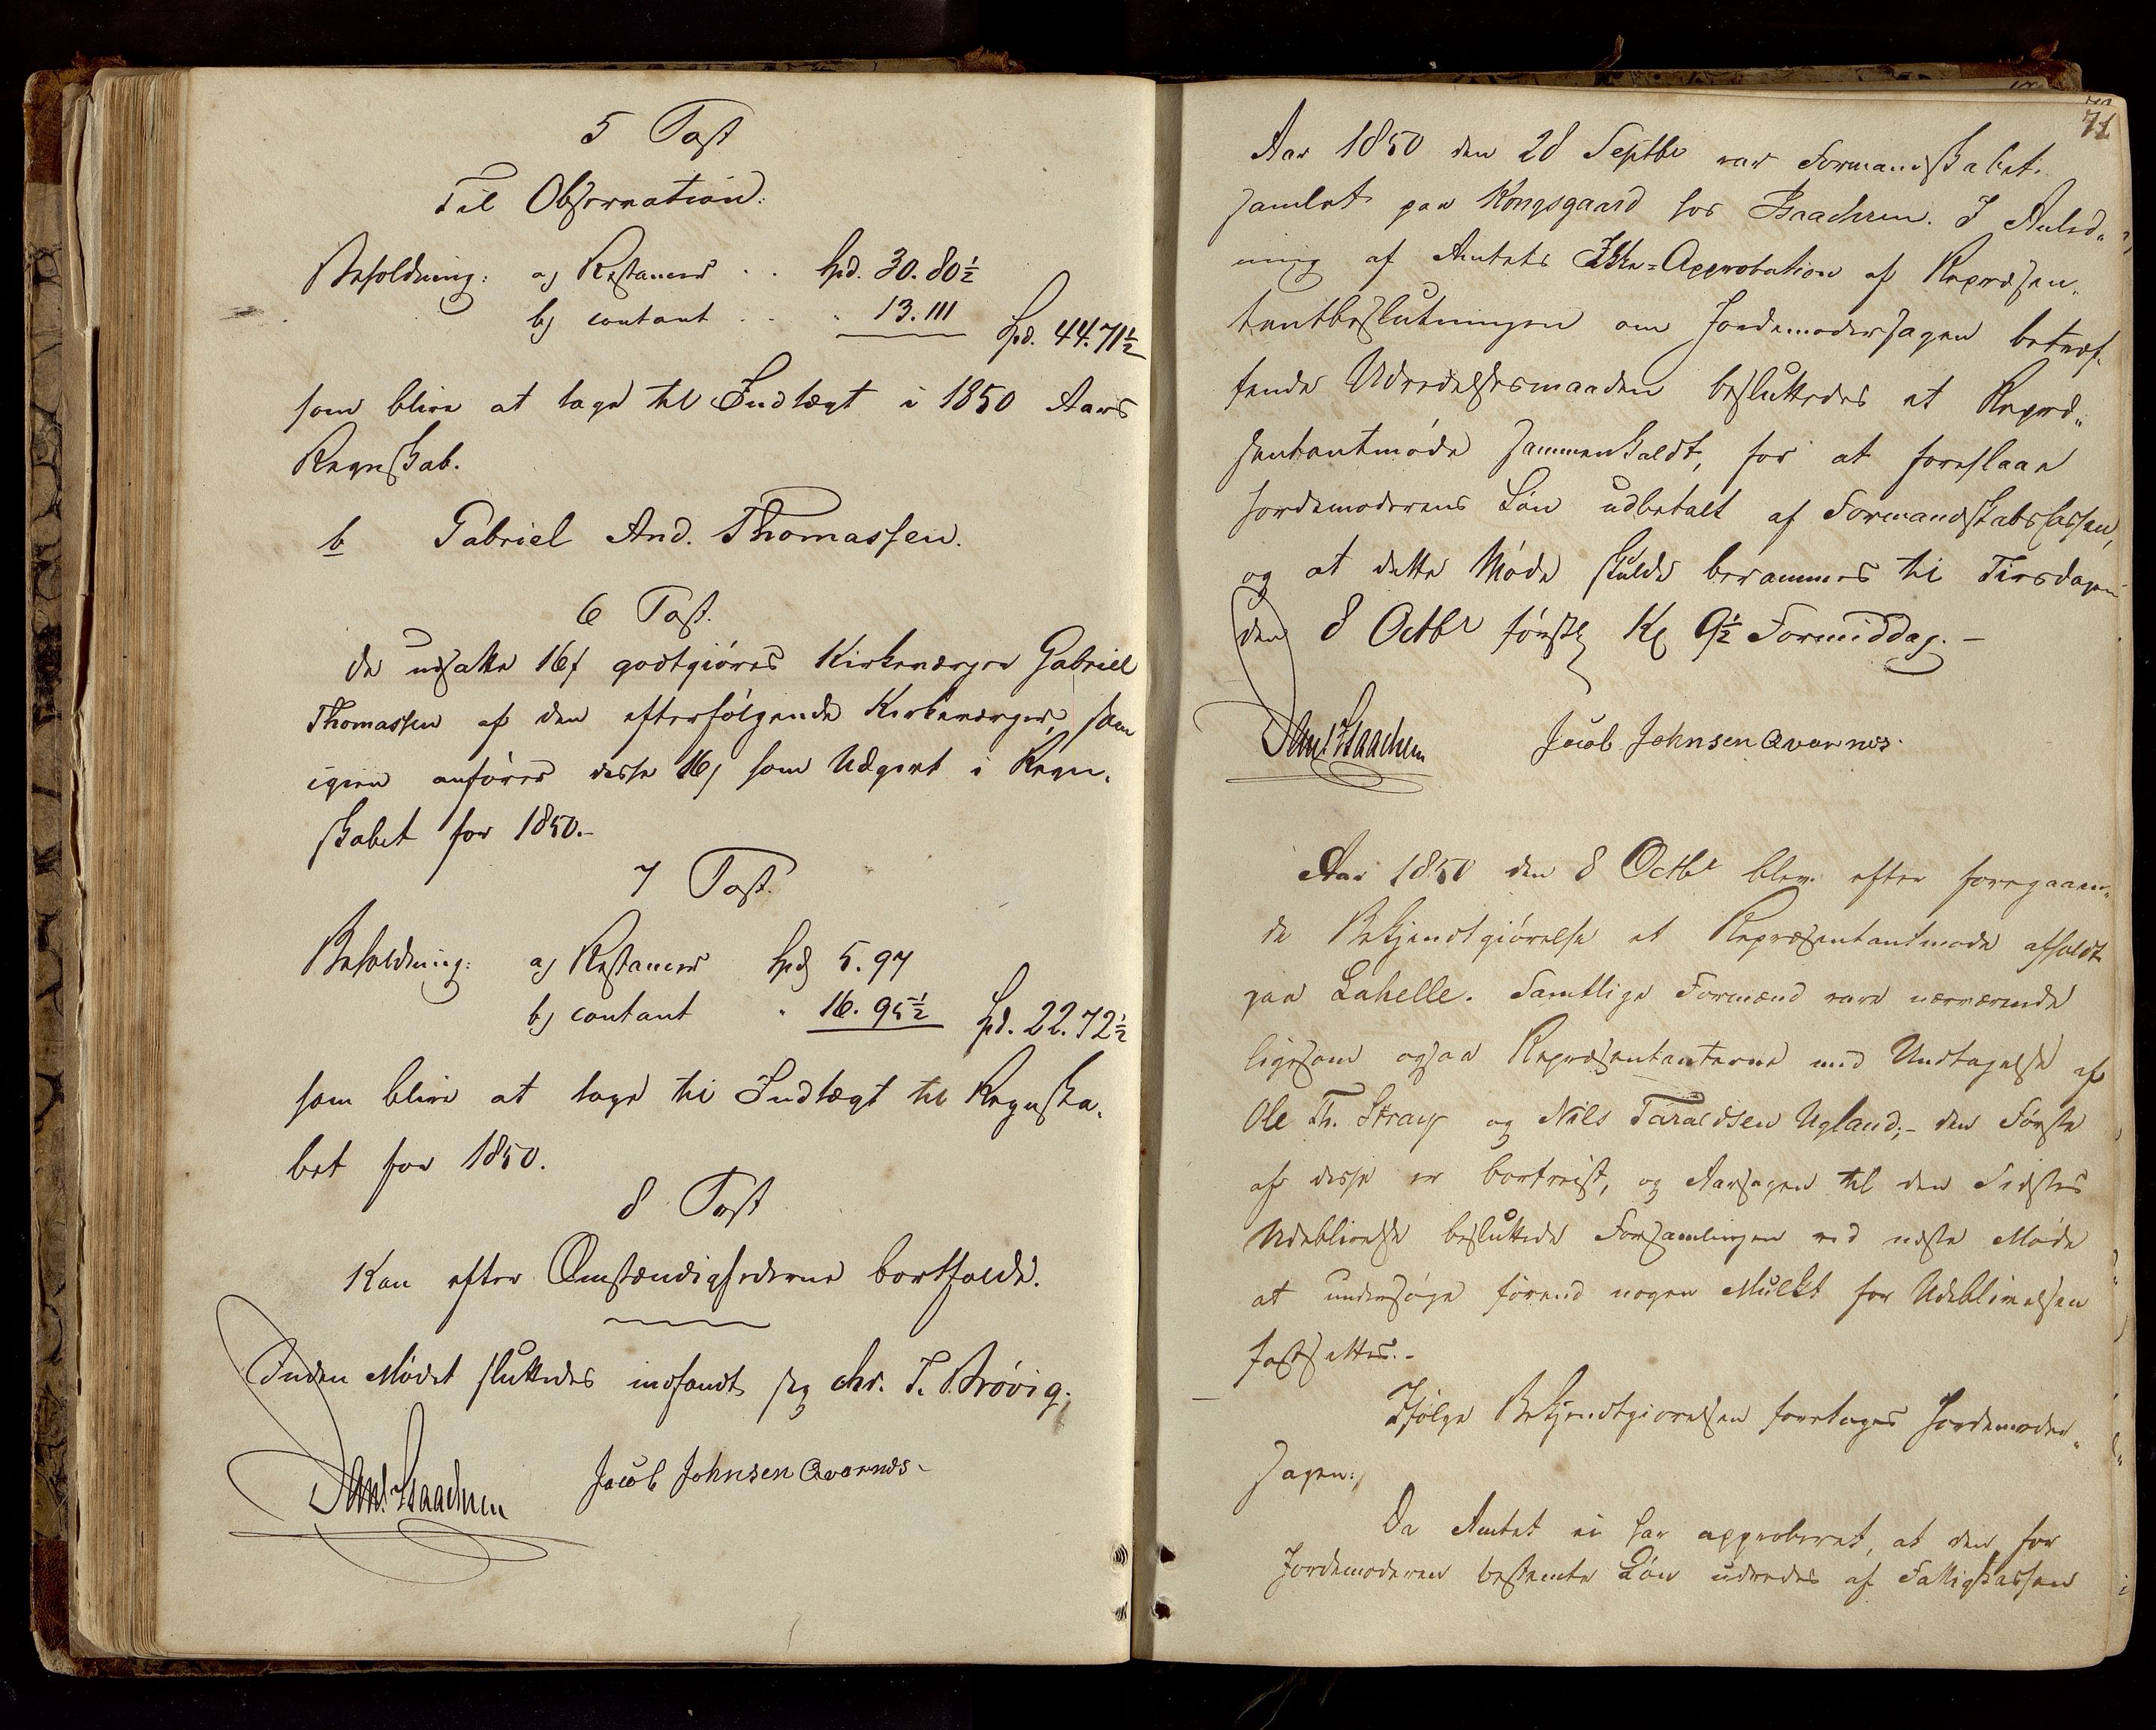 5 Post
Til Observation:
Beholdning: a) Restancer . . Spd. 30. 80½
b) contant . . . 13. 111
Spd. 44. 71½
som blive at tage til Indtægt i 1850 Aars
Regnskab.
b Gabriel And. Thomassen.
6 Post.
De udsatte 16 godtgiøres Kirkeværger Gabriel
Thomassen af den efterfølgende Kirkeværger, som
igien anfører disse 16 som Udgivt i Regn-
skabet for 1850.-
7 Post.
Beholdning: a) Restancer Spd 5. 97
b) contant " 16. 95½ Spd. 22. 72½
som blive at tage til Indtægt til Regnska-
bet for 1850.
8 Post
Kan efter Omstændighederne bortfalde.
Inden Mødet sluttedes indfandt sig Chr. T. Brøvig.
Dan. Isaachsen Jacob Johnsen Qvarnes-
71
Aar 1850 den 28 Septbr var Formandskabet
samlet paa Kongsgaard hos Isaachsen. I Anled-
ning af Amtets Ikke-Approbation af Repræsen-
tantbeslutningen om Jordemodersagen betræf-
fende Udredelsesmaaden besluttedes et Repræ-
sentantmøde sammenkaldt, for at foreslaae
Jordemoderens Løn udbetalt af Formandskabskassen,
og at dette Møde skulde berammes til Tirsdagen
den 8 Octbr førstk Kl 9½ Formiddag. -
Dan. Isaachsen Jacob Johnsen Qvarnes.
Aar 1850 den 8 Octbr blev efter foregaaen-
de Bekjendtgiørelse et Repræsentantmøde afholdt
paa Lahelle. Samtlige Formænd vare nærværende
ligesom ogsaa Repræsentanterne med Undtagelse af
Ole Th. Stray og Niels Taraldsen Ugland; - den Første
af disse er bortreist, og Aarsagen til den Sidstes
Udeblivelse besluttede Forsamlingen ved næste Møde
at undersøge førend nogen Mulkt for Udeblivelsen
fastsættes. -
Ifølge Bekjendtgiørelsen foretages Jordemoder-
sagen:
Da Amtet ei har approberet, at den for
Jordemoderen bestemte Løn udredes af Fattigkassen